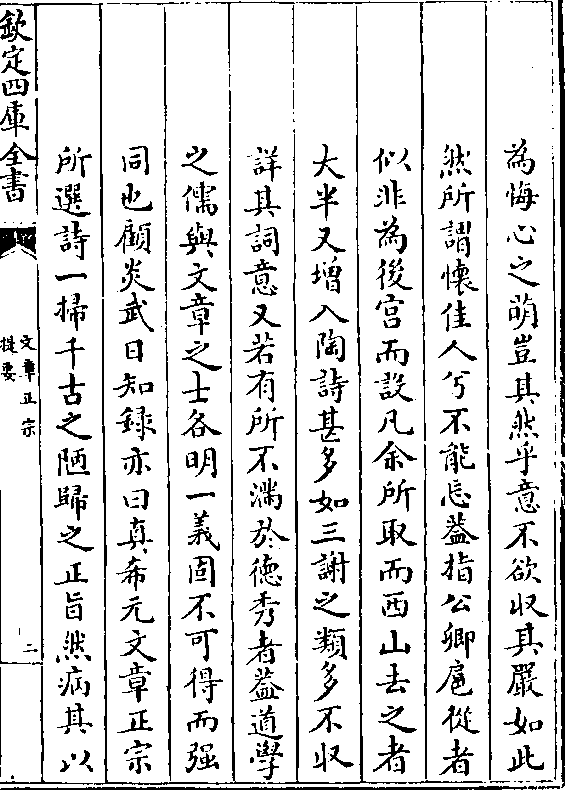 為悔心之萌豈其然乎意不欲收其嚴如此
然所謂懷佳人兮不能忘葢指公卿扈從者
似非為後宮而設凡余所取而西山去之者
大半又增入陶詩甚多如三謝之類多不収
詳其詞意又若有所不滿於徳秀者葢道學
之儒與文章之士各明一義固不可得而强
同也顧炎武日知録亦曰真希元文章正宗
所選詩一掃千古之陋歸之正旨然病其以
欽定四庫全書
文章正宗
提要
二